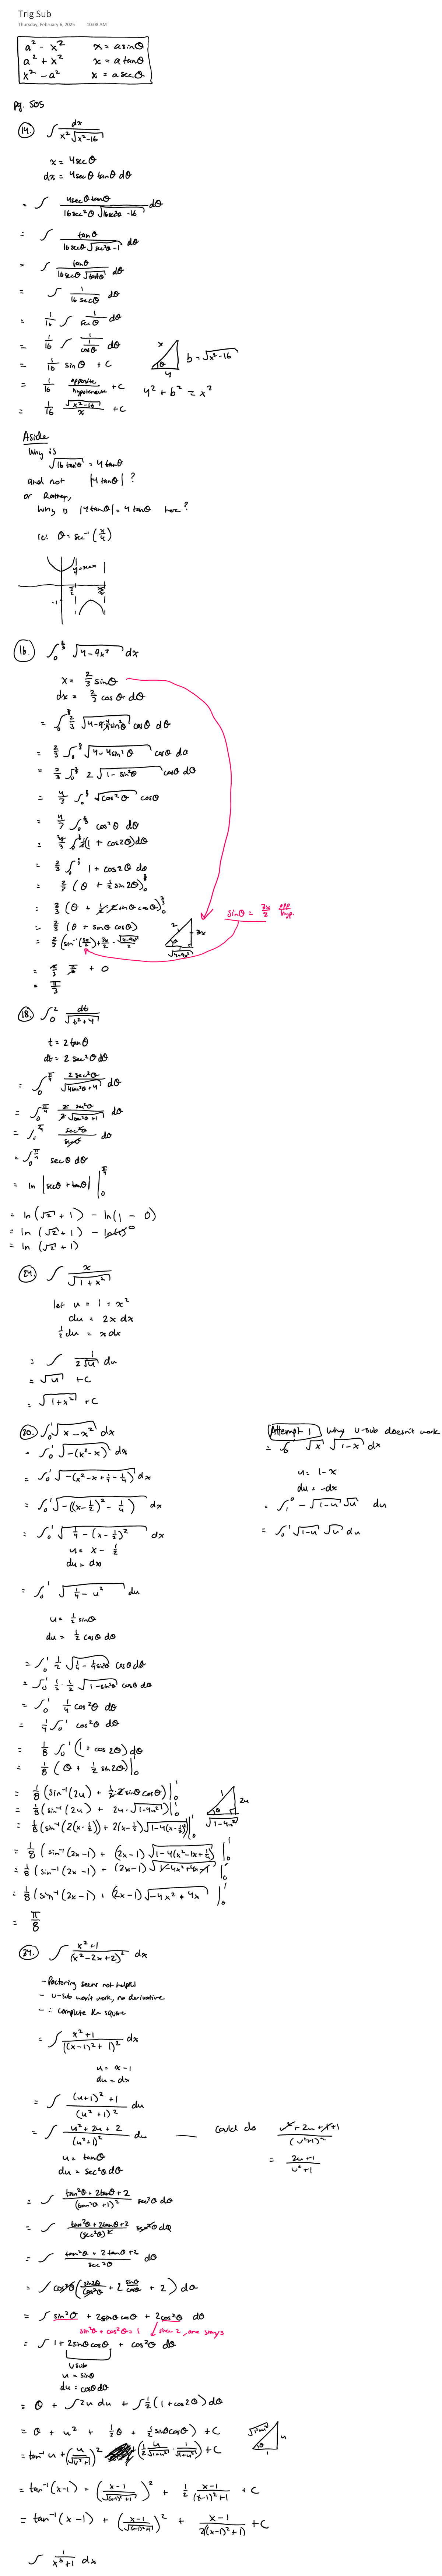 Trig Sub
Thursday, February 6, 2025 10:08 AM
a² - x² x = a sinθ
a² + x² x = a tanθ
x² - a² x = a secθ
pg. 505
14. ∫ dx / (x² √(x²-16))
x = 4secθ
dx = 4secθ tanθ dθ
= ∫ 4secθ tanθ / (16sec²θ √(16sec²θ - 16)) dθ
= ∫ tanθ / (16secθ √(sec²θ - 1)) dθ
= ∫ tanθ / (16secθ √(tan²θ)) dθ
= ∫ 1 / (16 secθ) dθ
= 1/16 ∫ 1/secθ dθ
= 1/16 ∫ 1/(1/cosθ) dθ
= 1/16 sinθ + C
= 1/16 opposite/hypotenuse + C
= 1/16 √(x²-16)/x + C
x
b = √(x²-16)
θ
4
4² + b² = x²
Aside
Why is
√(16 tan²θ) = 4 tanθ
and not |4 tanθ| ?
or Rather,
why is |4 tanθ| = 4 tanθ here?
ie: θ = sec⁻¹(x/4)
y = sec x
π/2
-1
16. ∫₀^(2/3) √(4-9x²) dx
x = 2/3 sinθ
dx = 2/3 cosθ dθ
= 2/3 ∫₀ √(4-4sin²θ) cosθ dθ
= 2/3 ∫₀ 2 √(1-sin²θ) cosθ dθ
= 4/3 ∫₀ √(cos²θ) cosθ
= 4/3 ∫₀ cos²θ dθ
= 2/3 ∫₀ 1 + cos2θ dθ
= 2/3 (θ + 1/2 sin2θ)₀
= 2/3 (θ + 1/2 · 2 sinθ cosθ)₀
= 2/3 (θ + sinθ cosθ)
= 2/3 (sin⁻¹(3x/2) + 3x/2 · √(4-9x²)/2)
2
3x
θ
√(4-9x²)
sinθ = 3x/2 opp/hyp.
= 2/3 π/2 + 0
= π/3
18. ∫₀² dt/√(t²+4)
t = 2tanθ
dt = 2 sec²θ dθ
= ∫₀^(π/4) 2sec²θ/√(4tan²θ + 4) dθ
= ∫₀^(π/4) 2 sec²θ/(2√(tan²θ + 1)) dθ
= ∫₀^(π/4) sec²θ/secθ dθ
= ∫₀^(π/4) secθ dθ
= ln |secθ + tanθ| |₀^(π/4)
= ln(√2 + 1) - ln(1 - 0)
= ln(√2 + 1) - ln(1) 0
= ln(√2 + 1)
24. ∫ x/√(1+x²)
let u = 1 + x²
du = 2x dx
1/2 du = x dx
= ∫ 1/(2√u) du
= √u + C
= √(1+x²) + C
30. ∫₀¹ √(x - x²) dx
= ∫₀¹ √(-(x²-x)) dx
= ∫₀¹ √(-(x²-x+1/4-1/4)) dx
= ∫₀¹ √(-((x-1/2)² - 1/4)) dx
= ∫₀¹ √(1/4 - (x-1/2)²) dx
u = x - 1/2
du = dx
= ∫₀¹ √(1/4 - u²) du
u = 1/2 sinθ
du = 1/2 cosθ dθ
= ∫₀¹ 1/2 √(1/4 - 1/4 sin²θ) cosθ dθ
= ∫₀¹ 1/2 · 1/2 √(1-sin²θ) cosθ dθ
= ∫₀¹ 1/4 cos²θ dθ
= 1/4 ∫₀¹ cos²θ dθ
= 1/8 ∫₀¹ (1 + cos2θ) dθ
= 1/8 (θ + 1/2 sin2θ)|₀¹
= 1/8 (sin⁻¹(2u) + 1/2 · 2 sinθ cosθ)|₀¹
= 1/8 (sin⁻¹(2u) + 2u · √(1-4u²))|₀¹
= 1/8 (sin⁻¹(2(x-1/2)) + 2(x-1/2) √(1-4(x-1/2)²))|₀¹
1
2u
θ
√(1-4u²)
= 1/8 (sin⁻¹(2x-1) + (2x-1) √(1-4(x²-x+1/4)))|₀¹
= 1/8 (sin⁻¹(2x-1) + (2x-1) √(1-4x²+4x-1))|₀¹
= 1/8 (sin⁻¹(2x-1) + (2x-1) √(-4x²+4x))|₀¹
= π/8
Attempt 1 why u-sub doesn't work
= ∫₀¹ √x √(1-x) dx
u = 1-x
du = -dx
= ∫₁⁰ -√(1-u) √u du
= ∫₀¹ √(1-u) √u du
∫ (x²+1)/(x²-2x+2)² dx
- Factoring seems not helpful
- u-sub won't work, no derivative
- ∴ complete the square
= ∫ (x²+1)/((x-1)²+1)² dx
u = x-1
du = dx
= ∫ ((u+1)²+1)/(u²+1)² du
= ∫ (u²+2u+2)/(u²+1)² du
could do (u²+2u+1+1)/(u²+1)²
= (2u+1)/(u²+1)
u = tanθ
du = sec²θ dθ
= ∫ (tan²θ + 2tanθ + 2)/(tan²θ + 1)² sec²θ dθ
= ∫ (tan²θ + 2tanθ + 2)/(sec²θ)² sec²θ dθ
= ∫ (tan²θ + 2tanθ + 2)/sec²θ dθ
= ∫ cos²θ (sin²θ/cos²θ + 2 sinθ/cosθ + 2) dθ
= ∫ sin²θ + 2sinθcosθ + 2cos²θ dθ
sin²θ + cos²θ = 1
= ∫ 1 + 2sinθcosθ + cos²θ dθ
u sub
u = sinθ
du = cosθ dθ
= θ + ∫2u du + ∫1/2(1+cos2θ) dθ
= θ + u² + 1/2θ + 1/2 sinθcosθ + C
= tan⁻¹u + (u/√(u²+1))² + (1/2 u/√(1+u²) · 1/√(1+u²)) + C
√(1+u²)
u
θ
1
= tan⁻¹(x-1) + ((x-1)/√((x-1)²+1))² + 1/2 (x-1)/((x-1)²+1) + C
= tan⁻¹(x-1) + ((x-1)/√((x-1)²+1))² + (x-1)/(2((x-1)²+1)) + C
∫ 1/(x³+1) dx